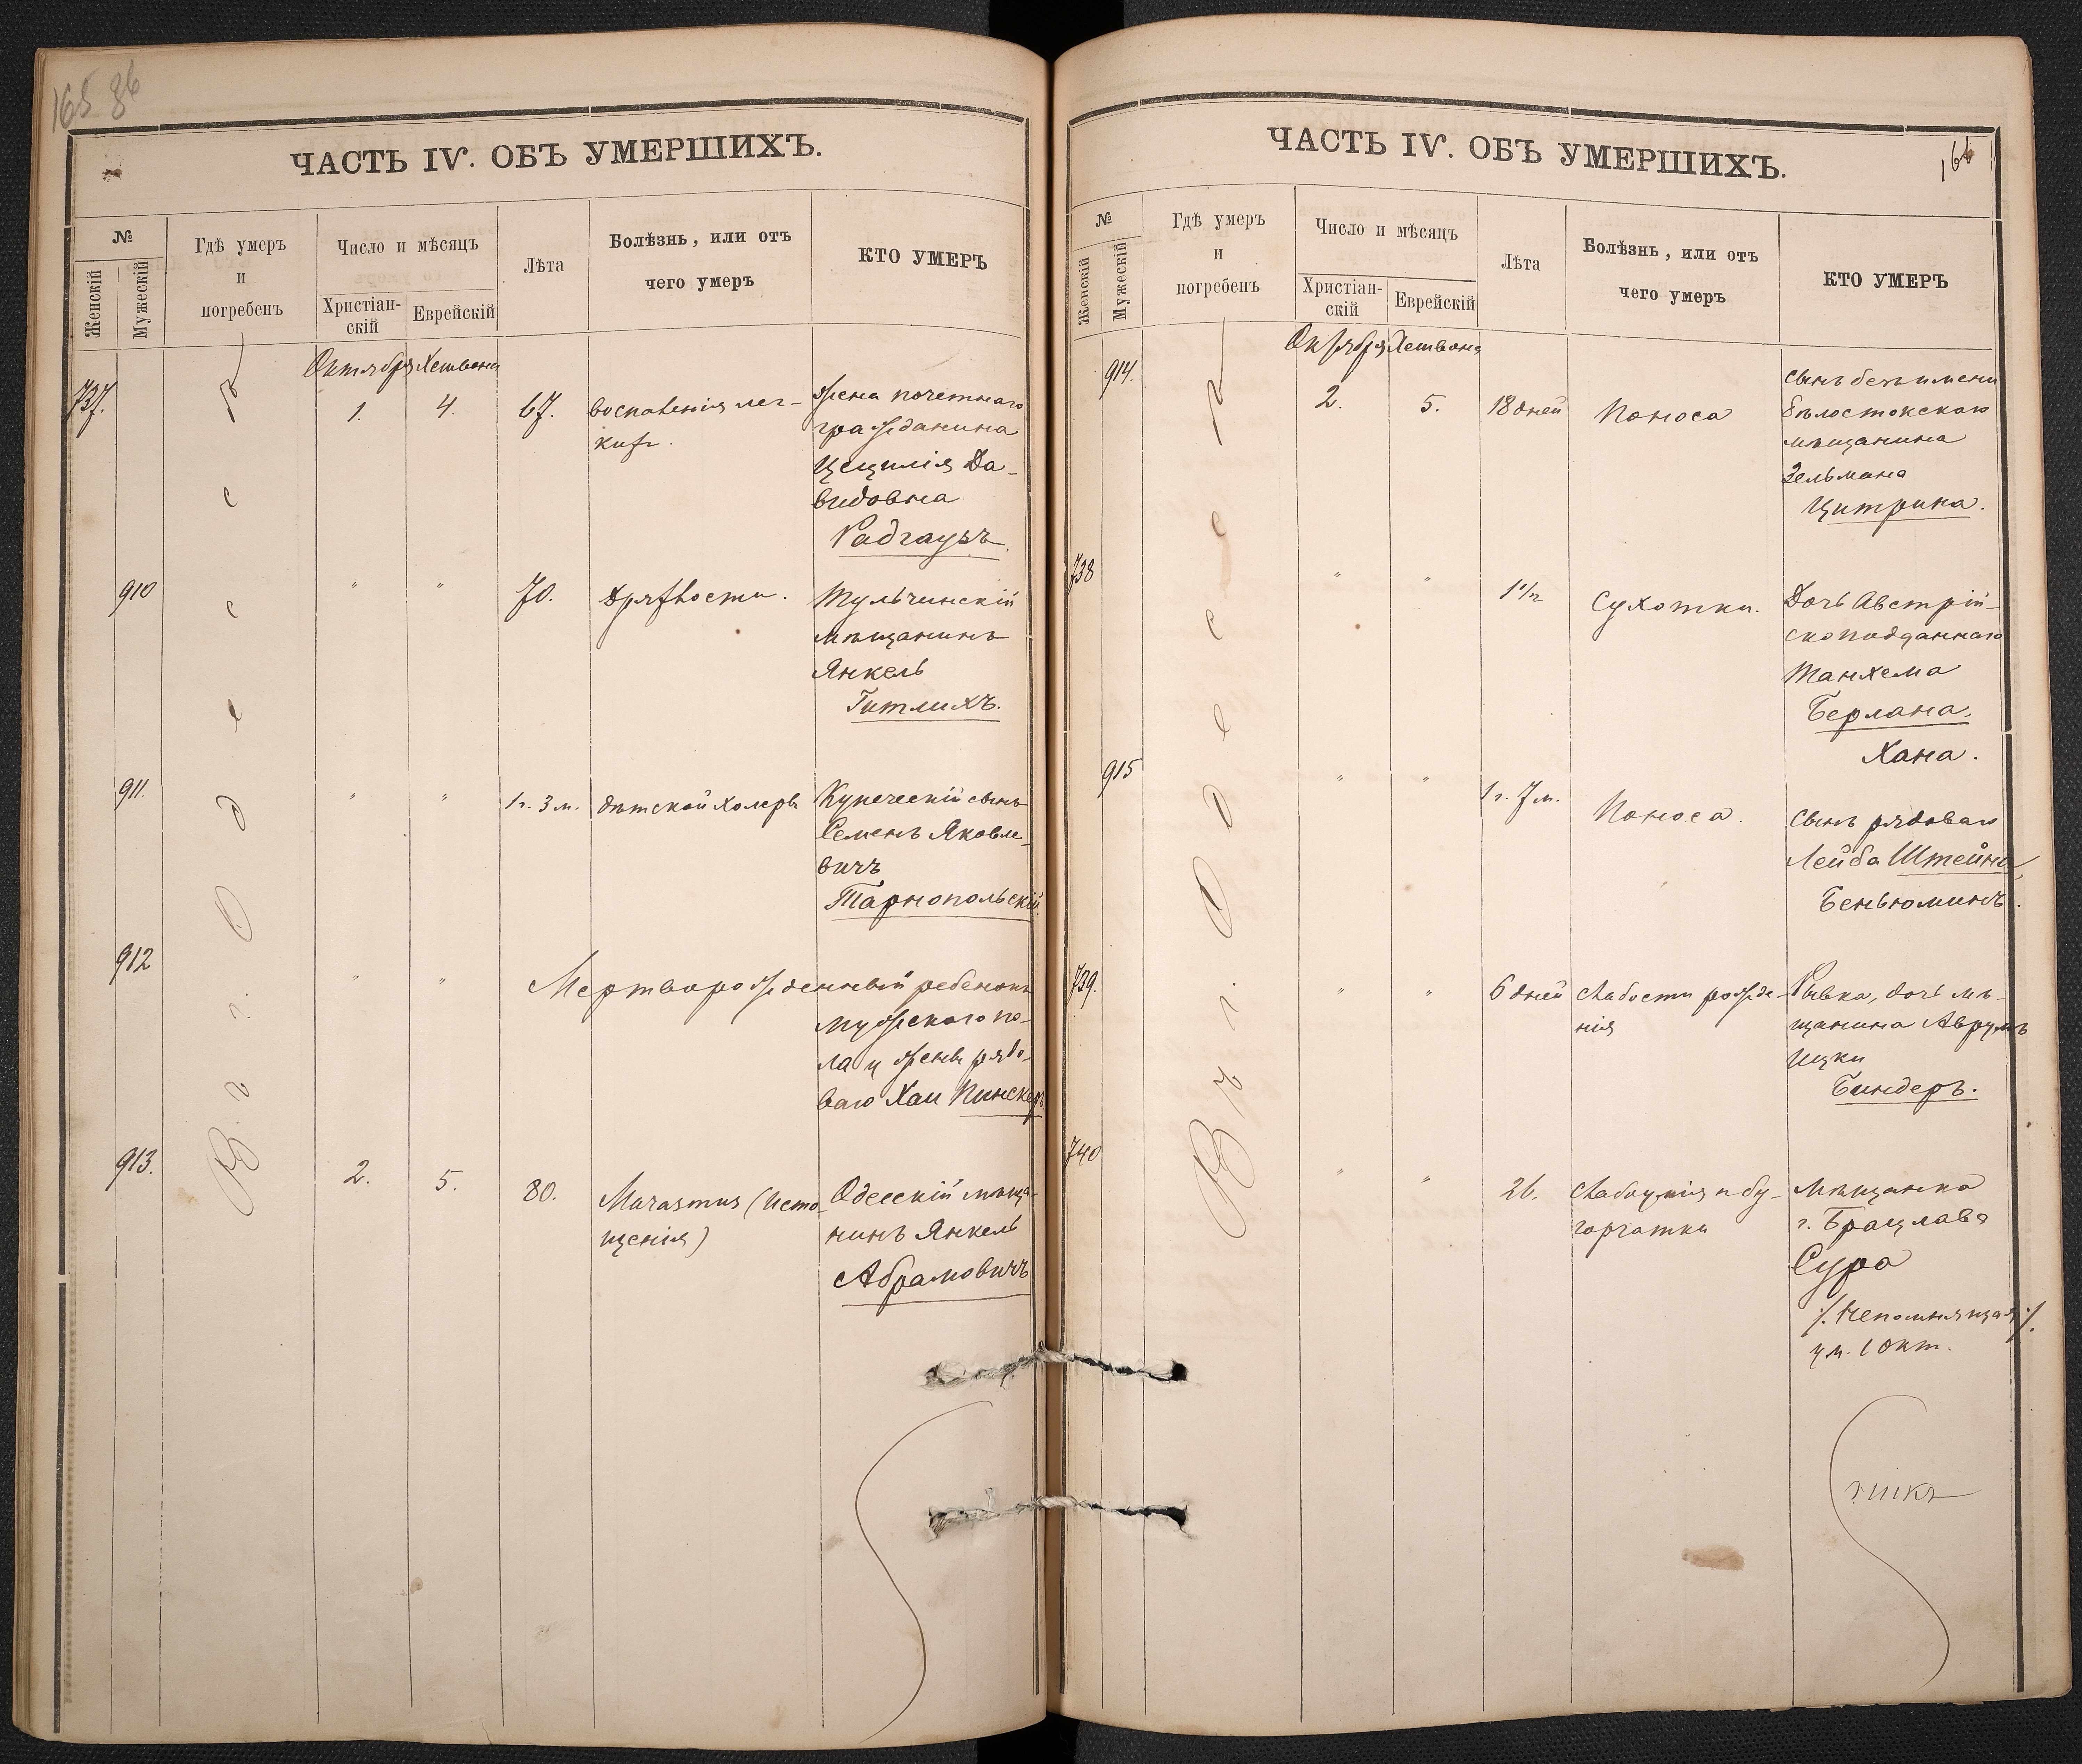 165 86
ЧАСТЬ IV. ОБЪ УМЕРШИХЪ.
№
Женскій
Мужескій
Гдѣ умеръ
и
погребенъ
Число и мѣсяцъ
Христіан-
скій
Еврейскій
Лѣта
Болѣзнь, или отъ
чего умеръ
КТО УМЕРЪ
Въ г. Одессѣ
Октября Хешвона
737. 1. 4. 67. воспаленія лег-
кихъ.
Жена почетнаго
гражданина
Цецилія Да-
видовна
Радгаузъ.
910 " " 70. Дряхлости.
Тульчинскій
мѣщанинъ
Янкель
Гитлихъ.
911. " " 1 г. 3 м. дѣтской холеры
Купеческій сынъ
Семенъ Яковле-
вичъ
Тарнопольскій.
912 " " Мертворожденный ребенокъ
мужскаго по-
ла у жены рядо-
ваго Хаи Пинскеръ
913. 2. 5. 80. Marasmus (исто-
щенія)
Одесскій мѣща-
нинъ Янкель
Абрамовичъ
ЧАСТЬ IV. ОБЪ УМЕРШИХЪ.
166
№
Женскій
Мужескій
Гдѣ умеръ
и
погребенъ
Число и мѣсяцъ
Христіан-
скій
Еврейскій
Лѣта
Болѣзнь, или отъ
чего умеръ
КТО УМЕРЪ
Въ г. Одессѣ
Октября Хешвона
914. 2. 5. 18 дней Поноса
Сынъ безъ имени
бѣлостокскаго
мѣщанина
Зельмана
Цитрина.
738 " " 1 1/2 Сухотки.
Дочь Австрій-
скоподданнаго
Танхема
Берлана.
Хана.
915 " " 1 г. 7 м. Поноса.
Сынъ рядоваго
Лейба Штейна,
Беньюминъ.
739. " " 6 дней слабости рожде-
нія
Рывка, дочь мѣ-
щанина Аврумъ
Ицки
Биндеръ.
740 " " 26. бу-
горчатки
Мѣщанка
г. Брацлава
Сура
/. Непомнящая ./
ум. 1 Окт.